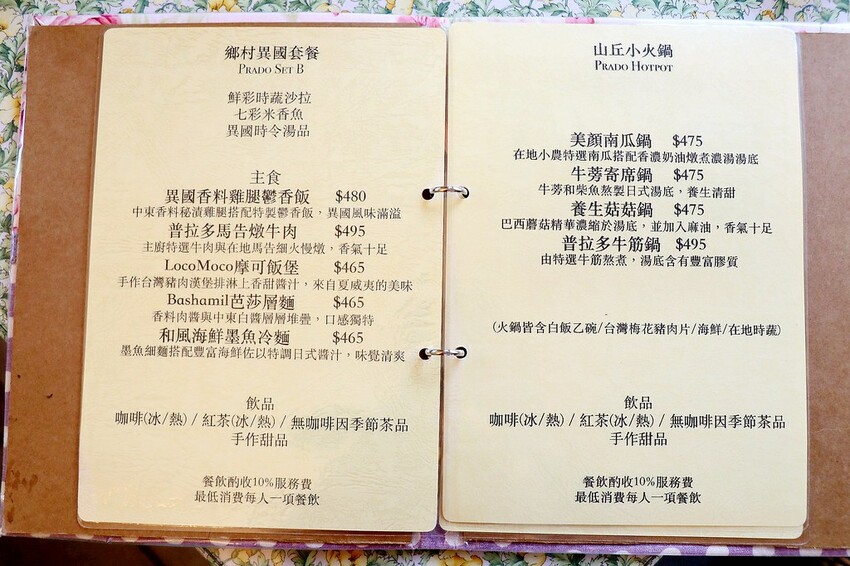 鄉村異國套餐
PRADO SET B
鮮彩時蔬沙拉
七彩米香魚
異國時令湯品
主食
異國香料雞腿鬱香飯 $480
中東香料秘漬雞腿搭配特製鬱香飯，異國風味滿溢
普拉多馬告燉牛肉 $495
主廚特選牛肉與在地馬告細火慢燉，香氣十足
LocoMoco摩可飯堡 $465
手作台灣豬肉漢堡排淋上香甜醬汁，來自夏威夷的美味
Bashamil芭莎層麵 $465
香料肉醬與中東白醬層層堆疊，口感獨特
和風海鮮墨魚冷麵 $465
墨魚細麵搭配豐富海鮮佐以特調日式醬汁，味覺清爽
飲品
咖啡(冰/熱) / 紅茶(冰/熱) / 無咖啡因季節茶品
手作甜品
餐飲酌收10%服務費
最低消費每人一項餐飲
山丘小火鍋
PRADO HOTPOT
美顏南瓜鍋 $475
在地小農特選南瓜搭配香濃奶油燉煮濃湯湯底
牛蒡寄席鍋 $475
牛蒡和柴魚熬製日式湯底，養生清甜
養生菇菇鍋 $475
巴西蘑菇精華濃縮於湯底，並加入麻油，香氣十足
普拉多牛筋鍋 $495
由特選牛筋熬煮，湯底含有豐富膠質
(火鍋皆含白飯乙碗/台灣梅花豬肉片/海鮮/在地時蔬)
飲品
咖啡(冰/熱) / 紅茶(冰/熱) / 無咖啡因季節茶品
手作甜品
餐飲酌收10%服務費
最低消費每人一項餐飲